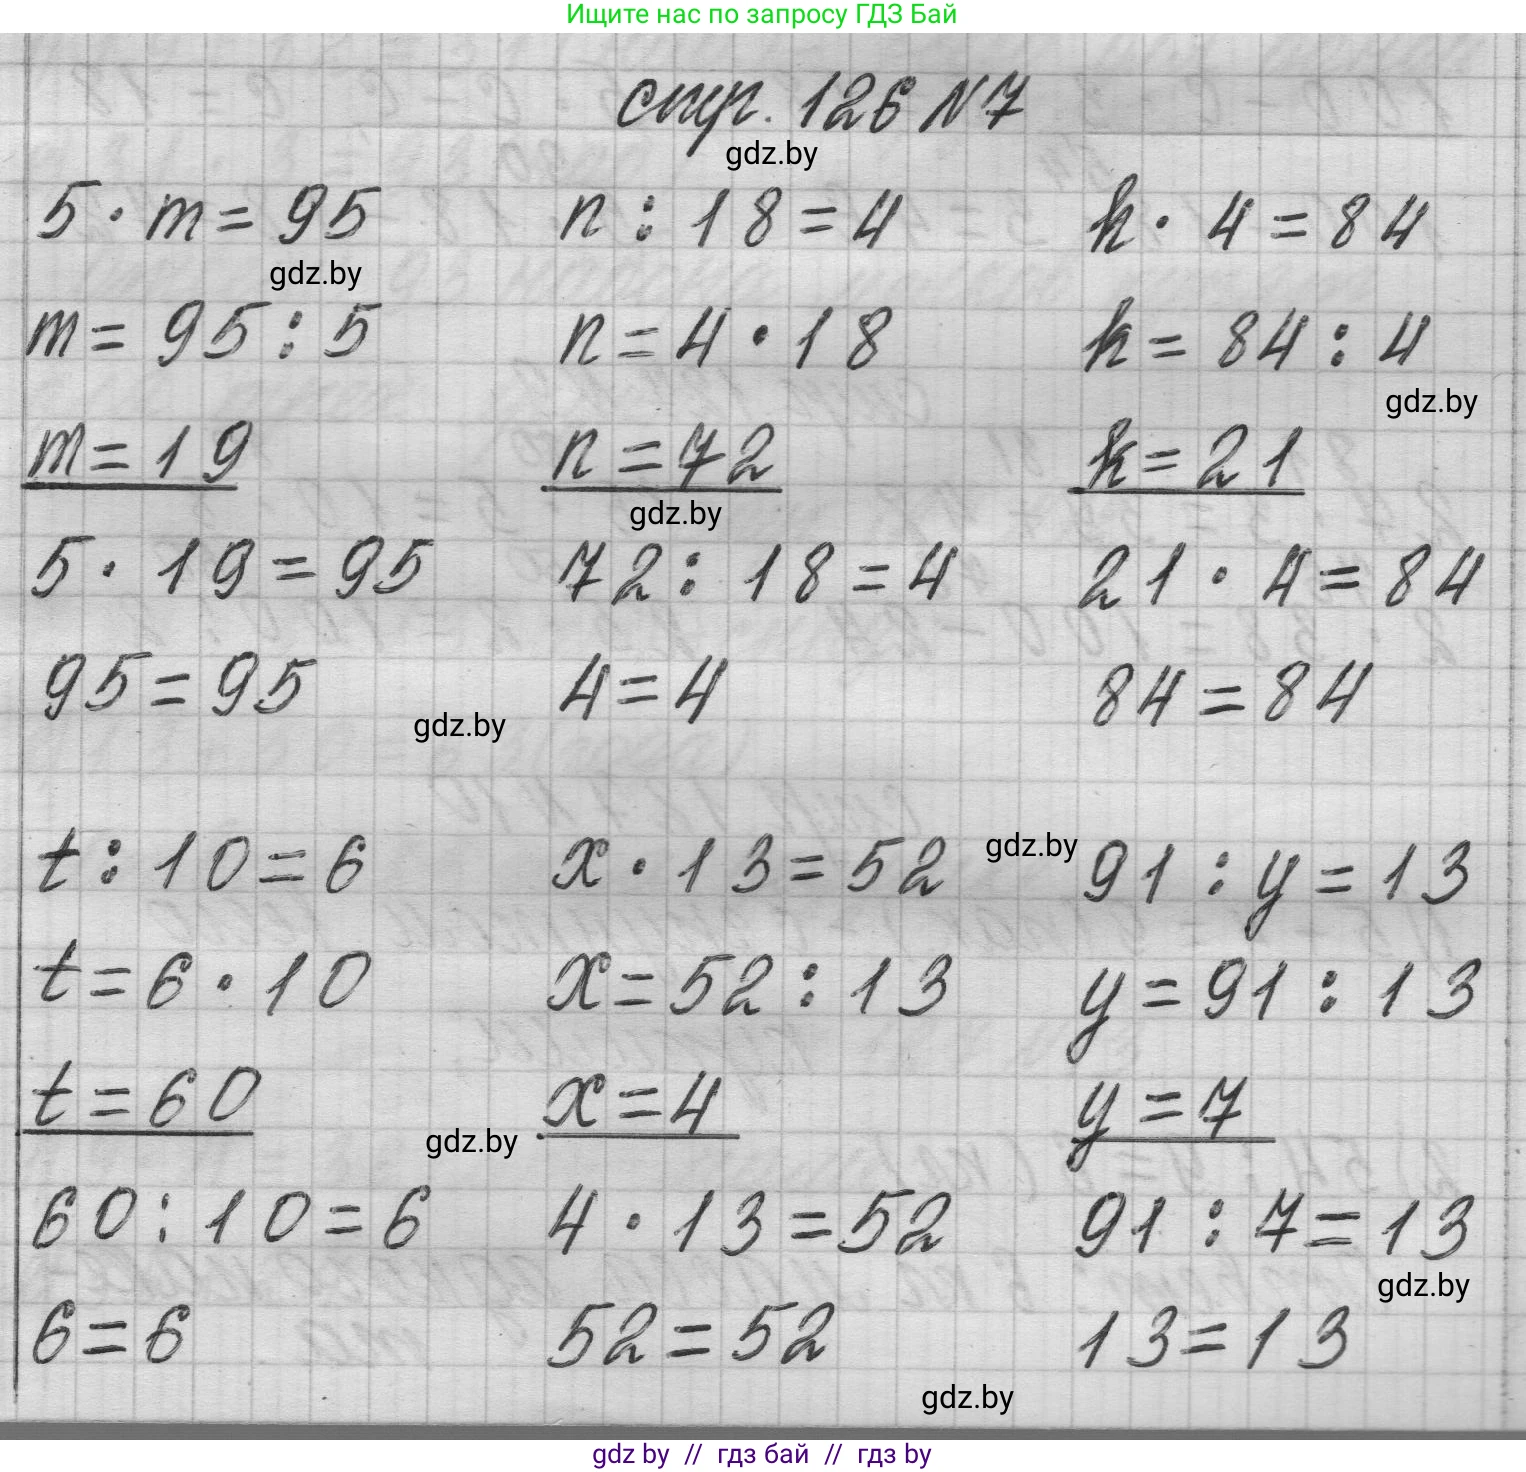 Ищите нас по запросу ГДЗ Бай
стр. 126 N 7
gdz.by
5 · m = 95    n : 18 = 4    k · 4 = 84
gdz.by
m = 95 : 5    n = 4 · 18    k = 84 : 4
gdz.by
m = 19    n = 72    k = 21
gdz.by
5 · 19 = 95    72 : 18 = 4    21 · 4 = 84
95 = 95    4 = 4    84 = 84
gdz.by
t : 10 = 6    x · 13 = 52    gdz.by    91 : y = 13
t = 6 · 10    x = 52 : 13    y = 91 : 13
t = 60    x = 4    y = 7
gdz.by
60 : 10 = 6    4 · 13 = 52    91 : 7 = 13
gdz.by
6 = 6    52 = 52    13 = 13
gdz.by
gdz by // гдз бай // гдз by